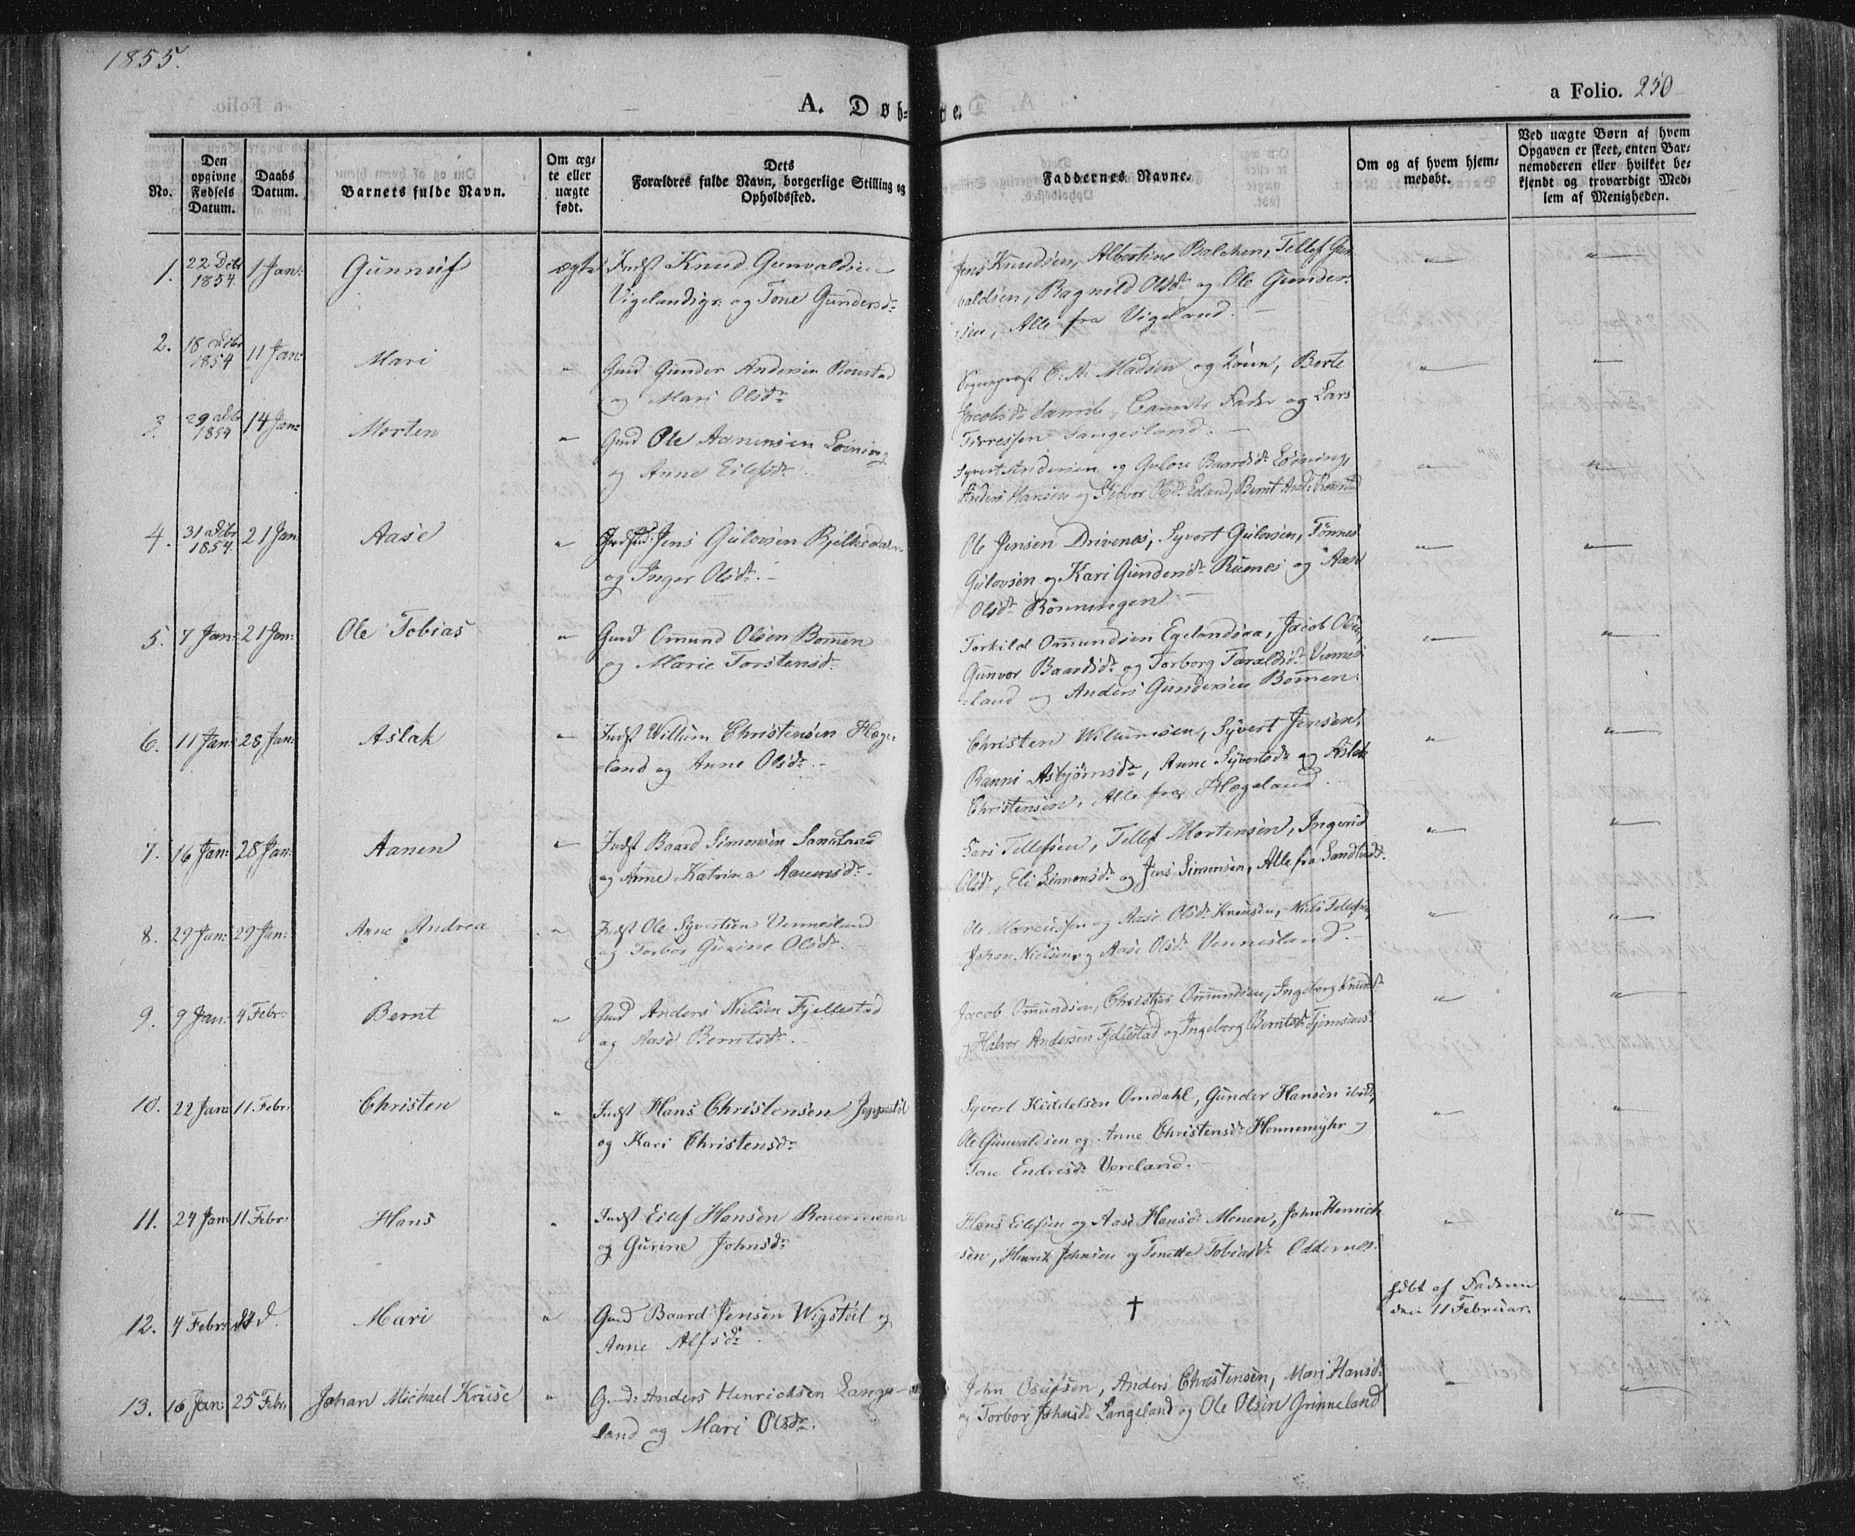 1855.
A. Døb-te.
a Folio. 250
No.
Den opgivne Fødsels Datum.
Daabs Datum.
Barnets fulde Navn.
Om ægte eller uægte født.
Dets Forældres fulde Navn, borgerlige Stilling og Opholdssted.
Faddernes Navne.
Om og af hvem hjemmedøbt.
Ved uægte Børn af hvem Opgaven er skeet, enten Barnemoderen eller hvilket bekjendt og troværdigt Medlem af Menigheden.
1. 22 Debr 1854. 1 Jan: Gunnuf ægte Indst Knud Gunvaldsen
Vigelandsgr. og Tone Gundersdr
Jens Knudsen, Albertine Balchen, Tellef Gun
valdsen, Ragnild Olsdr og Ole Gunder
sen, Alle fra Vigeland. —
2. 18 Debr 1854 11 Jan: Mari " Gmd Gunder Andersen Roustad
og Mari Olsdr
Sogneprest C. A. Madsen og Kone, Berte
Jacobsdr Fader og Lars
Torressen Langesland. —
3. 29 Dbr 1854 14 Jan: Morten " Gmd Ole Aanensen Løining
og Anne Eilefsdr.
Syvert Andersen og Gulou Baardsdr Løining,
Anders Hansen og Eeland, Bernt
4. 31 Dcbr 1854. 21 Jan Aase " Jens Gulovsen
og Inger Olsdr. —
Ole Jensen Drivenes, Syvert Gulovsen, Tønnes
Gulovsen og Kari Gundersdr Ruenes og Aase
Olsdr Rönningen —
5. 7 Jan: 21 Jan: Ole Tobias " Gmd Omund Olsen Bommen
og Marie Torstensdr.
Torkild Omundsen Egelandsaa, Jacob Olsen,
Gunvor Baardsdr og Torborg Taraldsdr Vennes
land og Anders Gundersen Bommen.
6. 11 Jan: 28 Jan: Aslak " Indst Willum Christensen Hæge
land og Anne Olsdr. —
Christen Willumsen, Syvert Jensen,
Ranni Asbjørnsdr, Anne Syvertsdr og Aslak
Christensen, Alle fra Hægeland.
7. 16 Jan: 28 Jan: Aanen " Indst Baard Simonsen Sandland
og Anne Katrina Aanensdr.
Lars Tellefsen, Tellef Mortensen, Ingerid
Olsdr, Eli Simonsdr og Jens Simonsen, Alle fra Sandland.
8. 29 Jan: 29 Jan: Anne Andrea " Indst Ole Syvertsen Vennesland
og Torbor Gurine Olsdr.
Ole Marcussen og Aase Olsdr Knudsen, Niels Tellefsen,
Johan Nielsen og Aase Olsdr Vennesland. —
9. 9 Jan: 4 Febr: Bernt " Gmd Anders Nielsen Fjellestad
og Aase Berntsdr.
Jacob Omundsen, Christen Omundsen, Ingeborg Knudsdr
og Halvor Andersen Fjellestad og Ingeborg Berntsdr
10. 22 Jan: 11 Febr: Christen " Indst Hans Christensen Jeppestöl
og Kari Christensdr
Syvert Kiddelsen Omdahl, Gunder Hansen ibid,
Ole Gunvaldsen og Anne Christensdr Honnemyhr og
Tone Endresdr Vareland. —
11. 24 Jan: 11 Febr: Hans " Indst Eilef Hansen
og Gurine Johnsdr
Hans Eilefsen og Aase Hansdr Monen, John Henrich
sen, Henrik Johnsen og Tonette Tobiasdr Oddernes.
12. 4 Febr: Mari " Gmd Baard Jensen Wigstöl og
Anne Alfsdr.
†
döbt af Faderen
den 11 Februar.
13. 16 Jan: 25 Febr: Johan Michael Kruse " Gmd: Anders Henrichsen Lange-
land og Mari Olsdr.
John Osulfsen, Anders Christensen, Mari Hansdr
og Torbor Johnsdr Langeland og Ole Olsen Grinneland